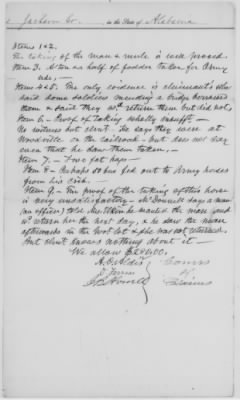 Jackson Co. in the State of Alabama
Items 1 & 2.
The taking of the mare & mule is well proved.
Item 3. A ton & a half of fodder taken for Army
use;
Item 4 & 5. The only evidence is claimant's who
said some soldiers mending a bridge borrowed
them & said they wd return them but did not,
Item 6 - Proof of taking wholly insufft. -
No witness but clmt. He says they were at
Woodville on the railroad - but does not say
even that he saw them taken. -
Item 7. - Two fat hogs -
Item 8 - Perhaps 50 bus fed out to Army horses
from his crib.
Item 9. - The proof of the taking of this horse
is very unsatisfactory - McDonnell says a man
(an officer) told he wanted the mare and
wd return her the next day, & he saw the mare
afterwards in the Govt lot & she was not returned.
But clmt knows nothing about it -
We allow
A. O. Aldis
O. Ferriss
J. B. Howell
Comrs
of
Claims